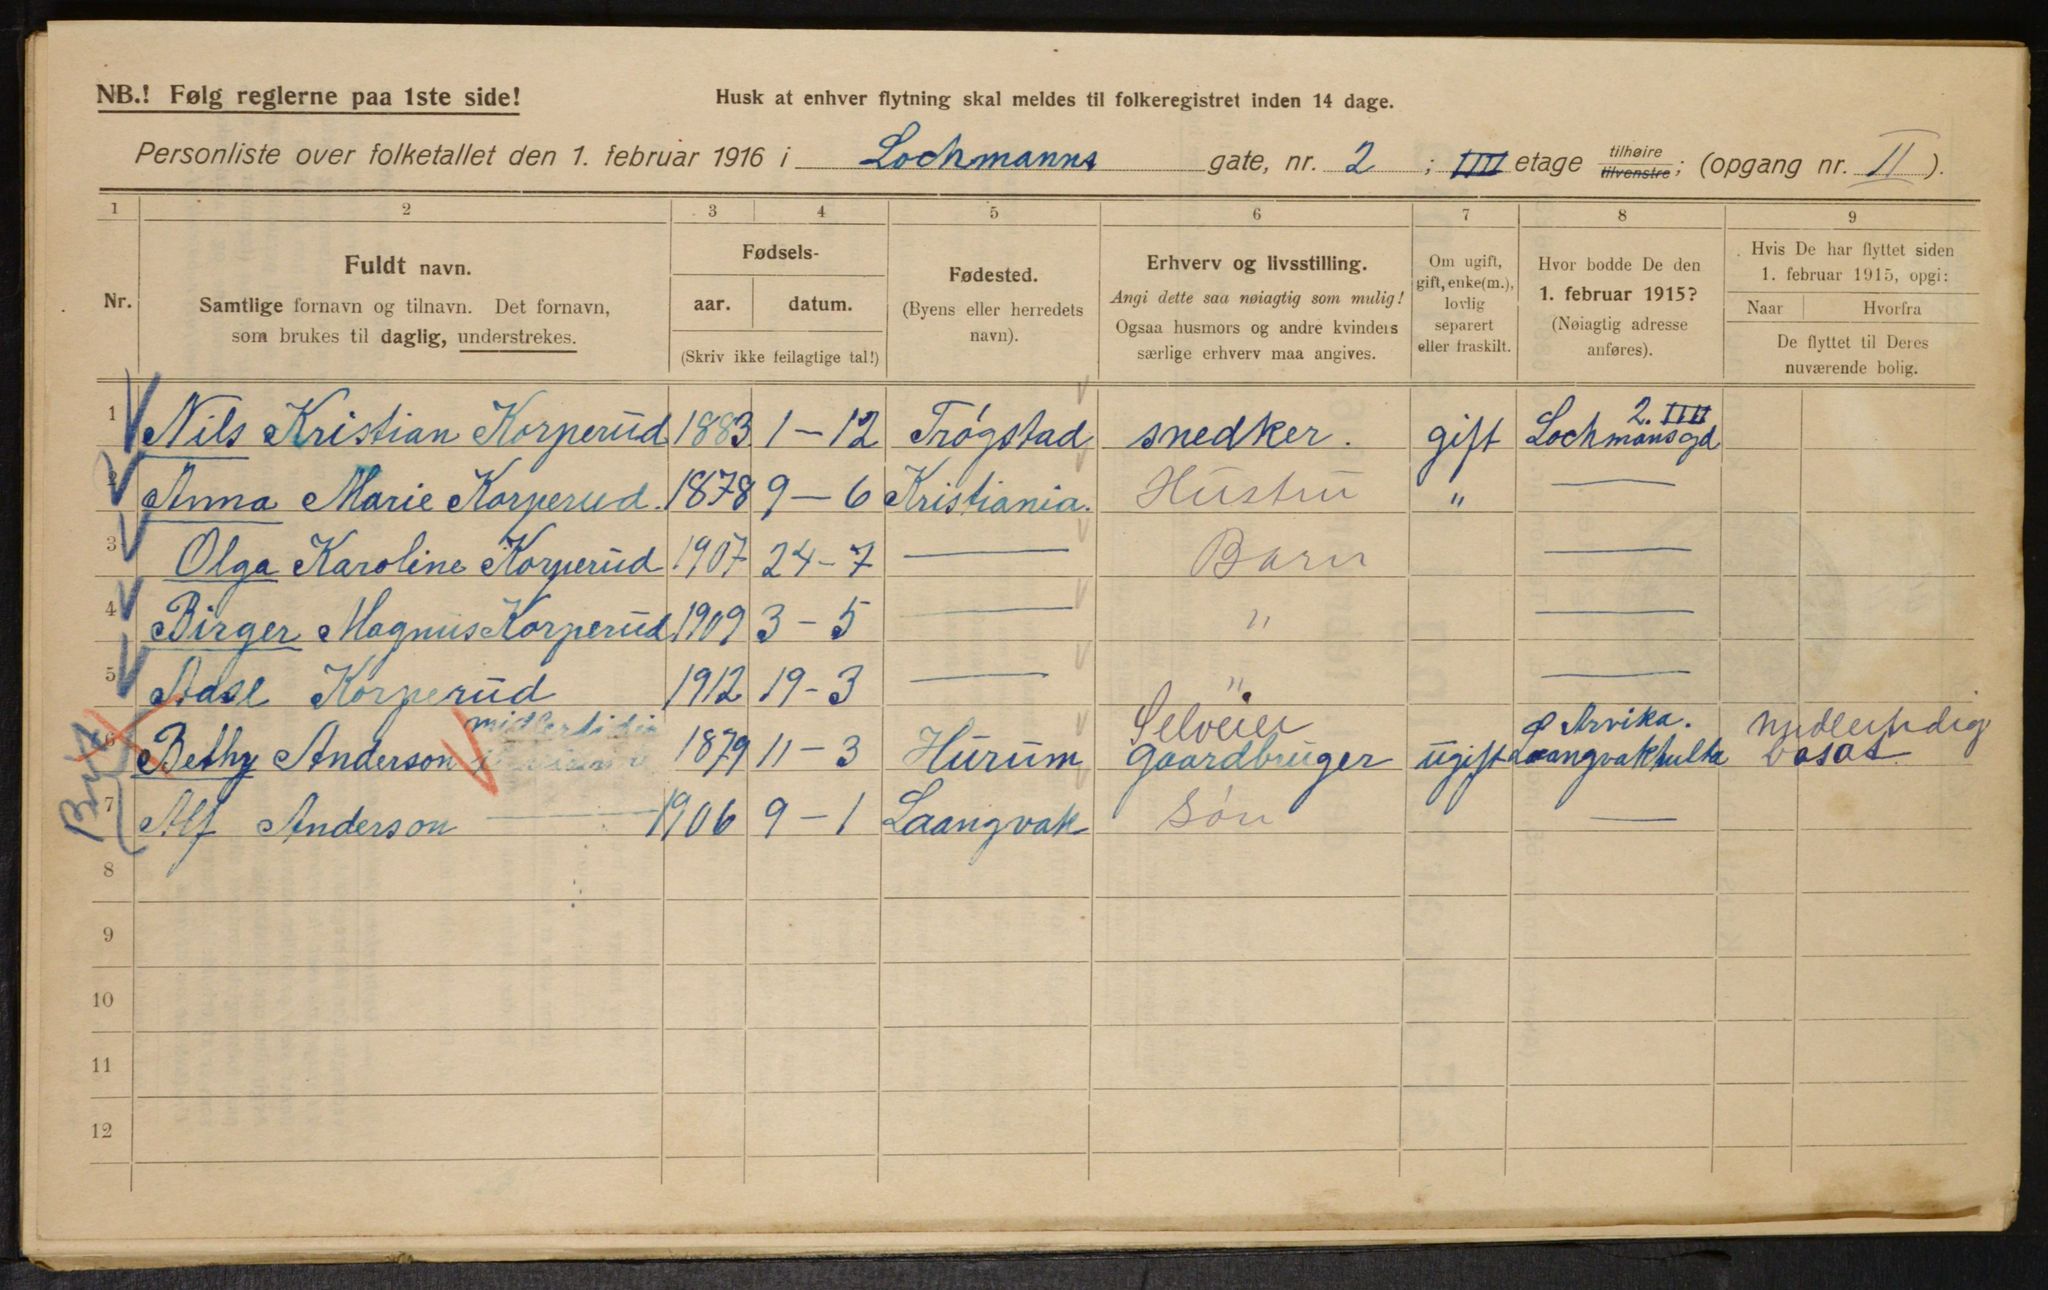 NB.! Følg reglerne paa 1ste side!
Husk at enhver flytning skal meldes til folkeregistret inden 14 dage.
Personliste over folketallet den 1. februar 1916 i Lochmanns gate, nr. 2 ; IIII etage tilhøire tilvenstre; (opgang nr. II).
1 2 3 4 5 6 7 8 9
Nr.
Fuldt navn.
Samtlige fornavn og tilnavn. Det fornavn,
som brukes til daglig, understrekes.
Fødsels-
aar. datum.
(Skriv ikke feilagtige tal!)
Fødested.
(Byens eller herredets
navn).
Erhverv og livsstilling.
Angi dette saa nøiagtig som mulig!
Ogsaa husmors og andre kvinders
særlige erhverv maa angives.
Om ugift,
gift, enke(m.),
lovlig
separert
eller fraskilt.
Hvor bodde De den
1. februar 1915?
(Nøiagtig adresse
anføres).
Hvis De har flyttet siden
1. februar 1915, opgi:
Naar Hvorfra
De flyttet til Deres
nuværende bolig.
2. IIII
1 Nils Kristian Korperud 1883 1–12 Trøgstad snedker. gift Lochmansgd
2 Anna Marie Korperud. 1878 9–6 Kristiania. Hustru " —
3 Olga Karoline Korperud 1907 24–7 — Barn —
4 Birger Magnus Korperud 1909 3–5 — " —
5 Aase Korperud 1912 19–3 — " —
midlertidig Selveier Arvika. Midlertidig
6 Bethy Anderson 1879 11–3 Hurum gaardbruger ugift bosat
7 Alf Anderson — 1906 9–1 Laangvak Søn —
8
9
10
11
12